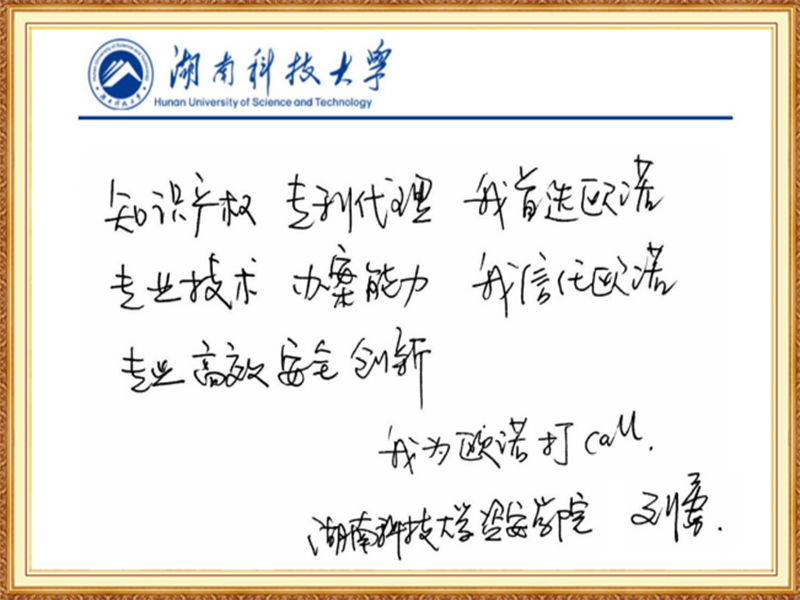 湖南科技大学
Hunan University of Science and Technology
知识产权 专利代理 我首选欧诺
专业技术 办案能力 我信任欧诺
专业 高效 安全 创新
我为欧诺打call.
湖南科技大学资安学院 刘